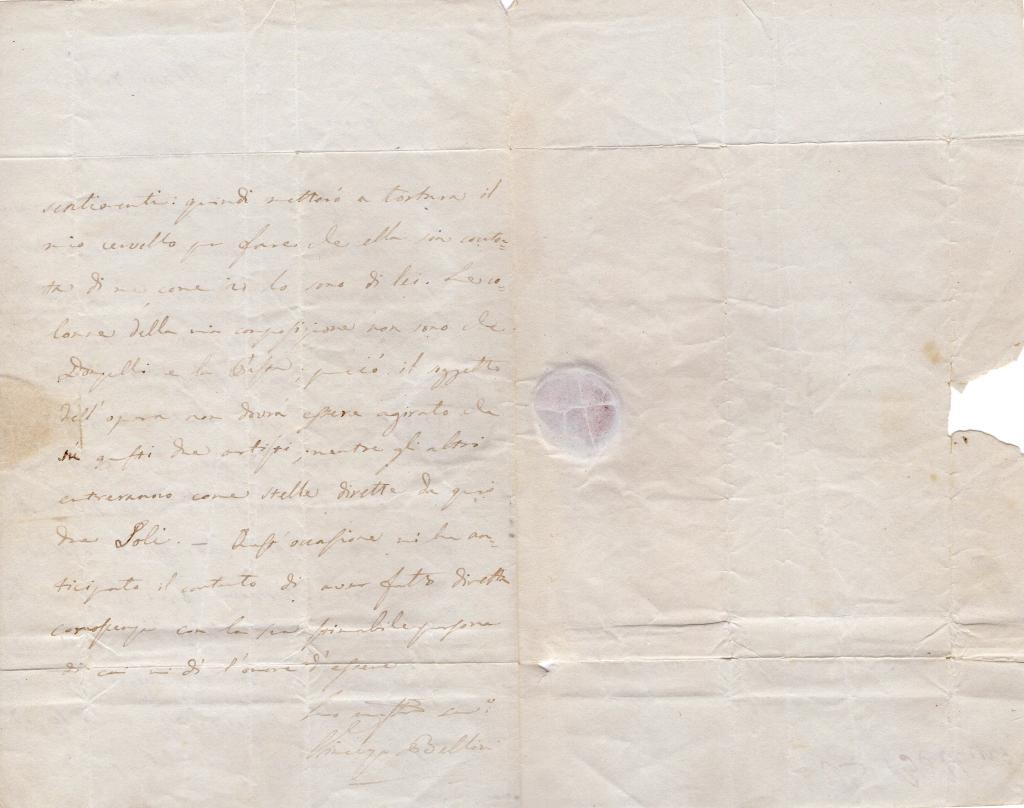 sentimenti: quindi metterò a tortura il
mio cervello per fare che ella sia conten=
ta di me come io lo sono di lei. Le co=
lonne della mia composizione non sono che
Donzelli e la Pasta; perciò il soggetto
dell'opera non dovrà essere agirato che
su questi due artisti, mentre gli altri
entreranno come stelle dirette da quei
due Soli. — Quest'occasione mi ha an=
ticipato il contento di aver fatto diretta
conoscenza con la sua stimabile persona
di cui mi dò l'onore d'essere
Suo
Vincenzo Bellini